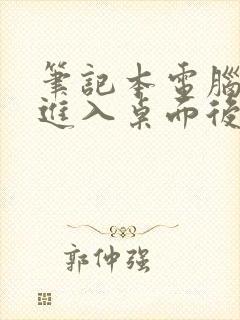 筆記本電腦
進入桌面後
郭仲强